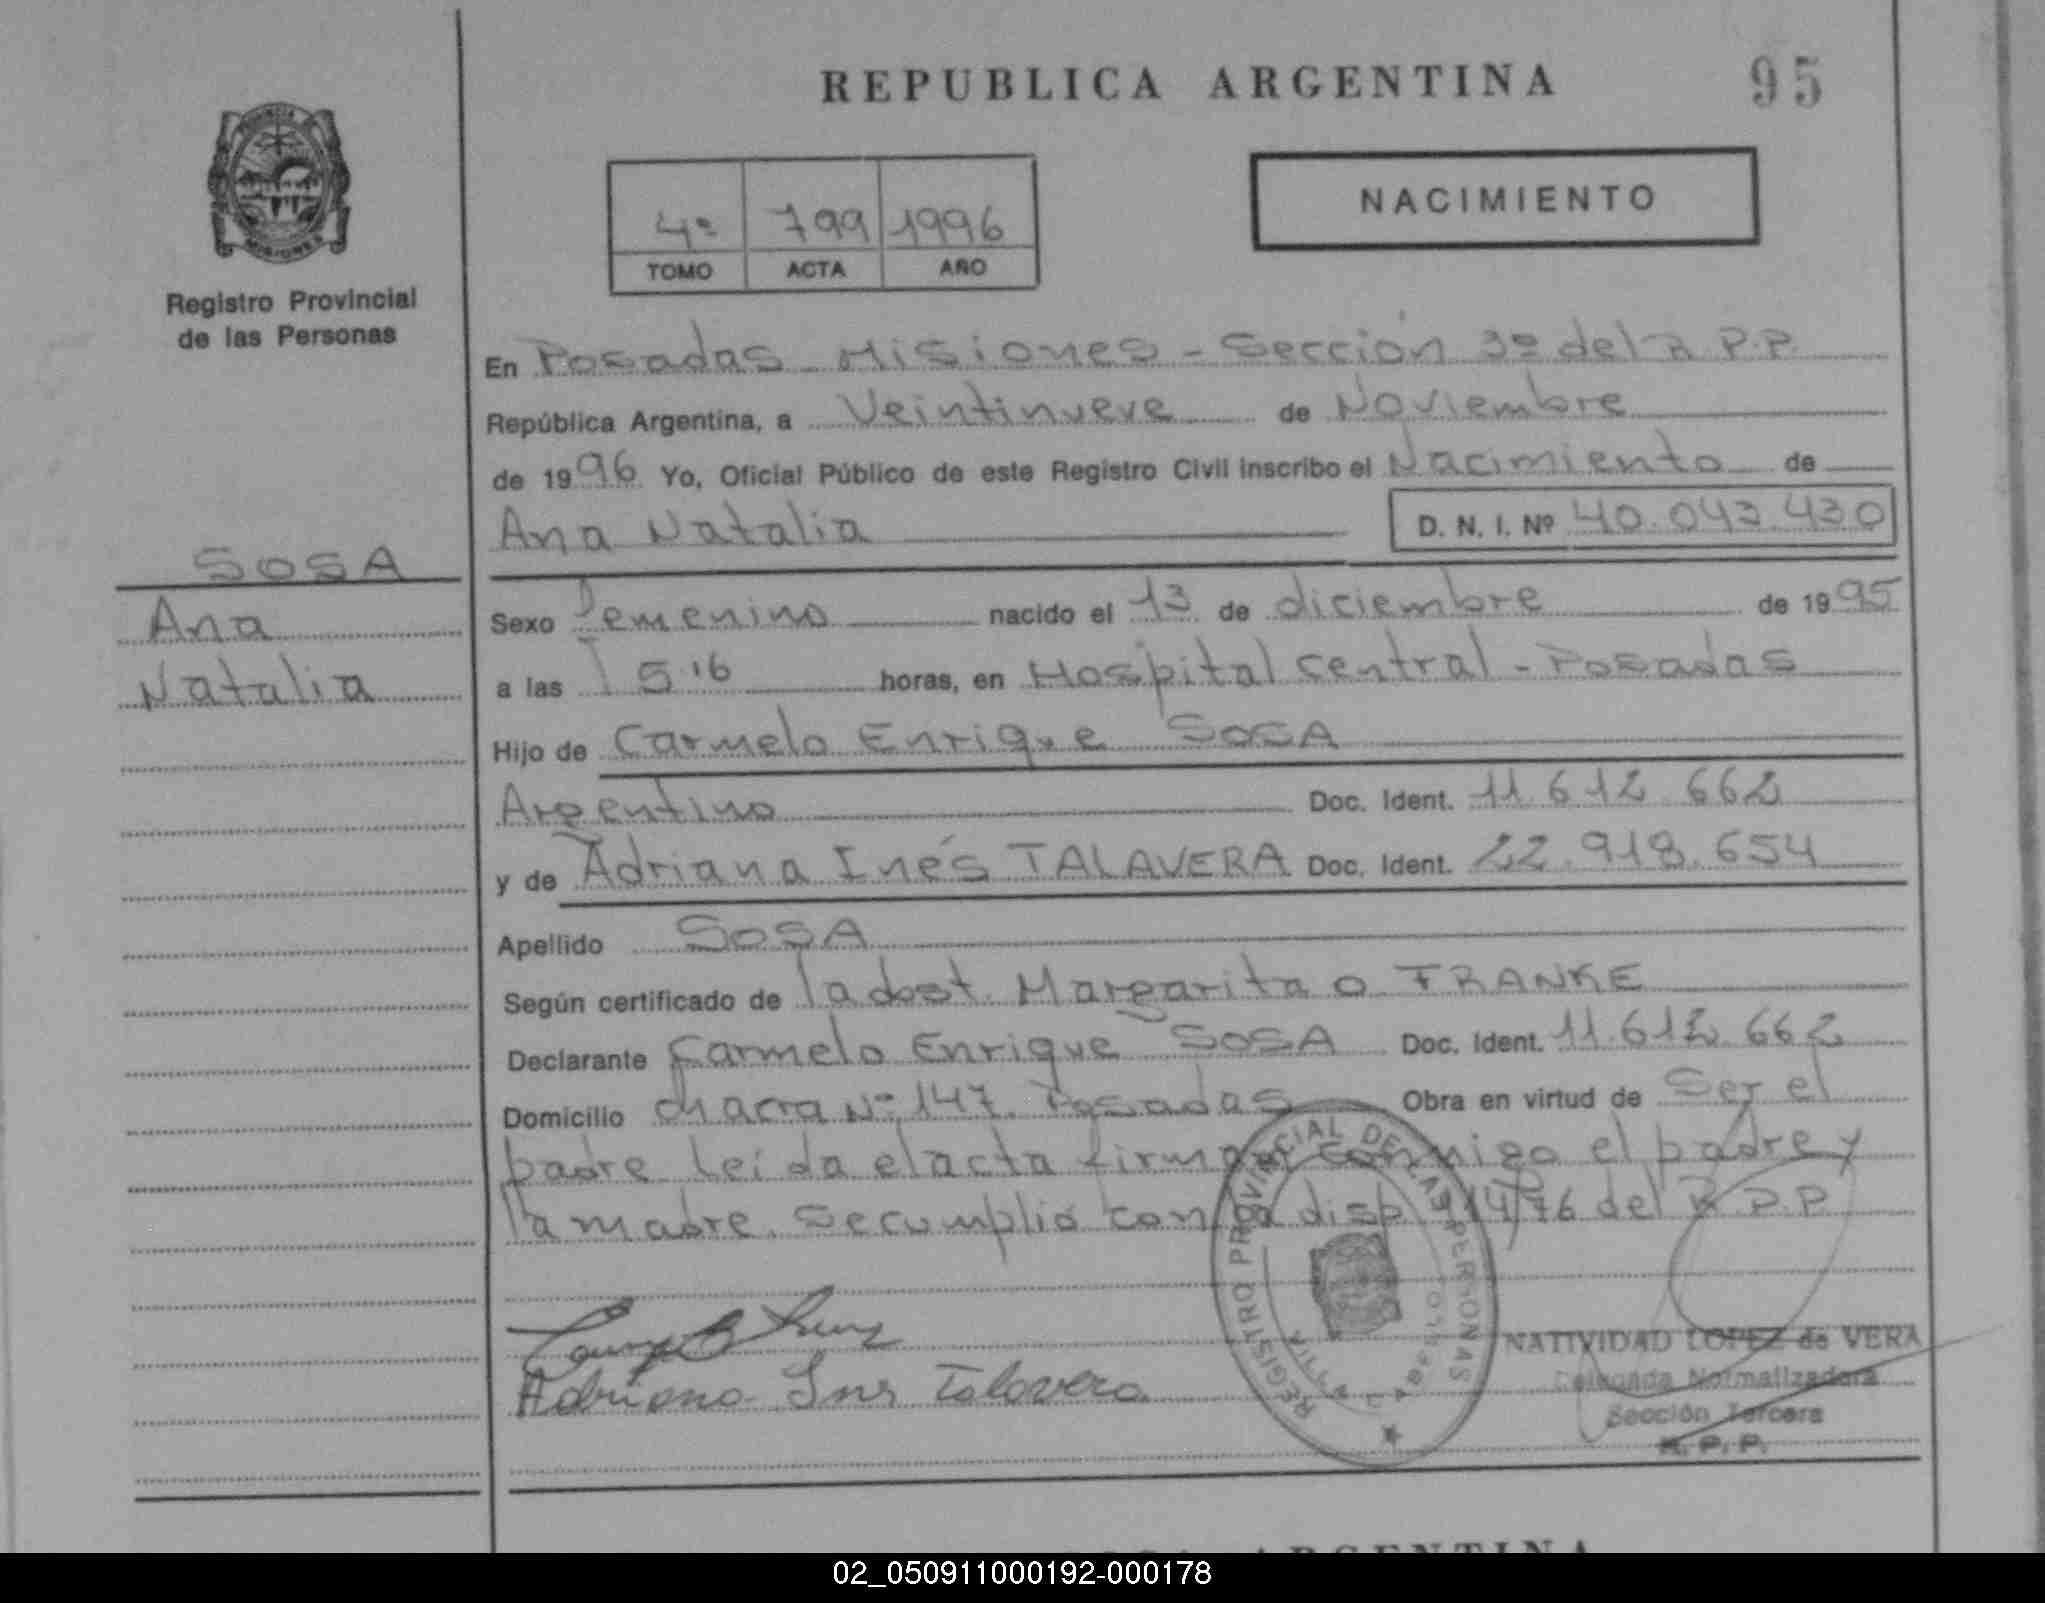 REPUBLICA ARGENTINA
95
Registro Provincial
de las Personas
4º 799 1996
TOMO ACTA AÑO
NACIMIENTO
En Posadas Misiones - Sección 3º del R.P.P.
República Argentina, a Veintinueve de Noviembre
de 1996 Yo, Oficial Público de este Registro Civil inscribo el Nacimiento de
Ana Natalia D. N. I. Nº 40.043.430
SOSA
Ana
Natalia
Sexo Femenino nacido el 13 de diciembre de 1995
a las 5:16 horas, en Hospital Central - Posadas
Hijo de Carmelo Enrique SOSA
Argentino Doc. Ident. 11.612.662
y de Adriana Inés TALAVERA Doc. Ident. 22.918.654
Apellido SOSA
Según certificado de la dost. Margarita O FRANKE
Declarante Carmelo Enrique SOSA Doc. Ident. 11.612.662
Domicilio chacra Nº 147 Posadas Obra en virtud de Ser el
padre Leída el acta firman conmigo el padre y
la madre. Se cumplió con la disp. 914/76 del R.P.P.
REGISTRO PROVINCIAL DE LAS PERSONAS
Adriana Ines Talavera
NATIVIDAD LOPEZ de VERA
Delegada Normalizadora
Sección Tercera
R. P. P.
ARGENTINA
02_050911000192-000178